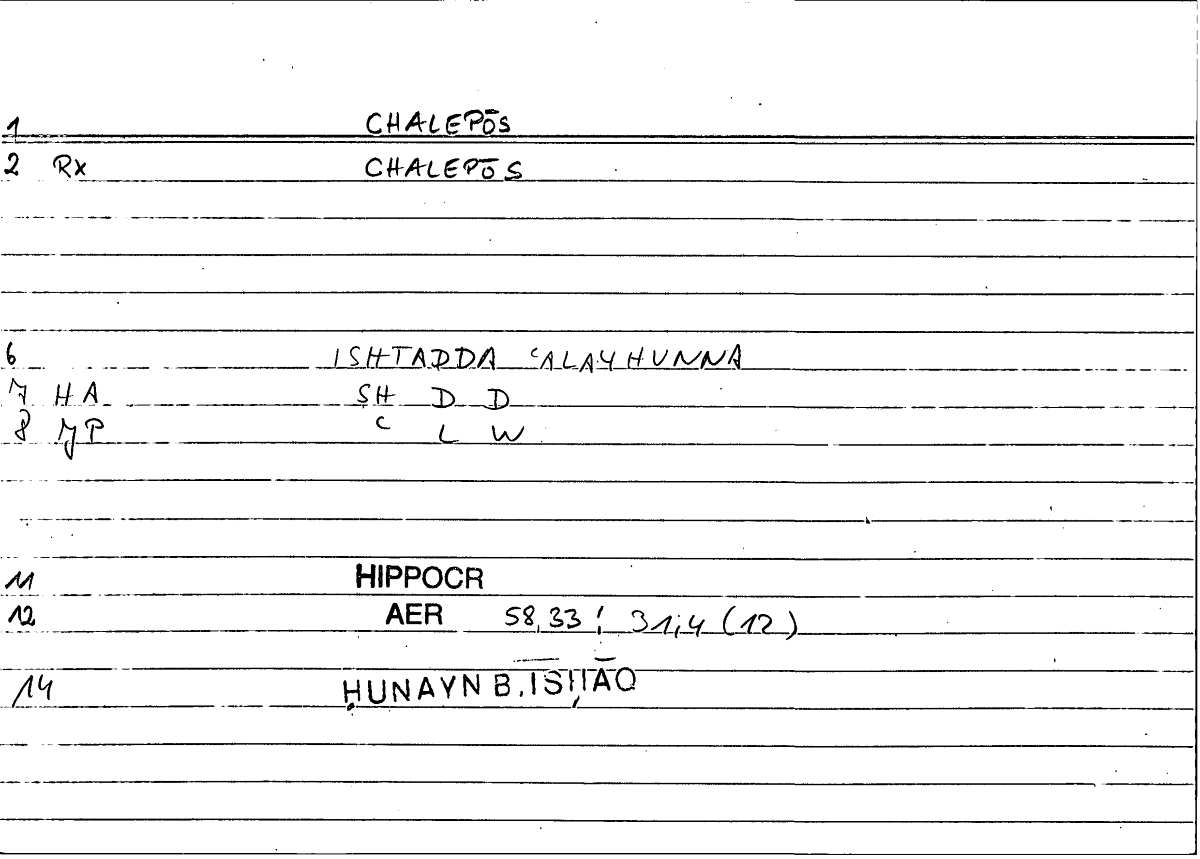 1 CHALEPŌS
2 Rx CHALEPŌS
6 ISHTADDA ʿALAYHUNNA
7 HA SH D D
8 JP ʿ L W
11 HIPPOCR
12 AER 58,33 ; 31,4 (12)
14 ḤUNAYN B. ISḤĀQ